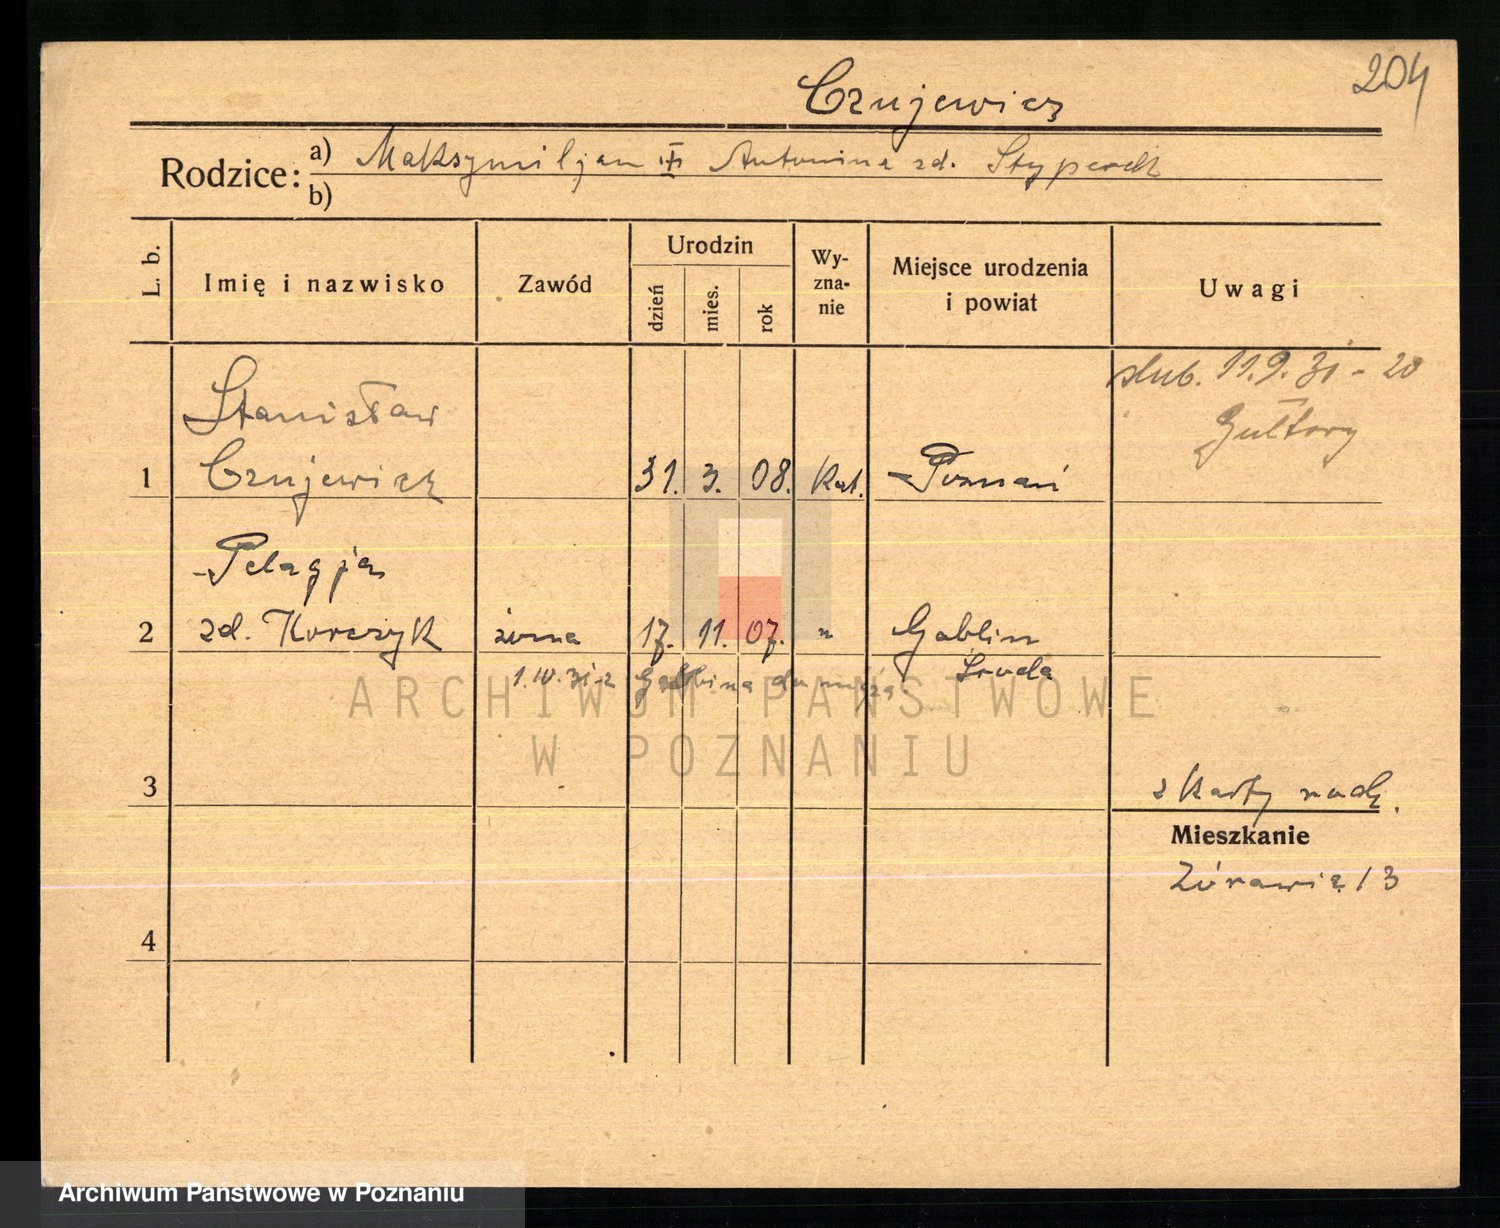 204
Czujewicz
Rodzice: a) Maksymiljan Antonina zd. Styperek
b)
L. b.
Imię i nazwisko
Zawód
Urodzin
dzień
mies.
rok
Wy-
zna-
nie
Miejsce urodzenia
i powiat
Uwagi
ślub. 11.9.31 - 20
Gułtowy
Stanisław
1 Czujewicz 31. 3. 08. kat. Poznań
Pelagja
2 zd. Korczyk żona 17. 11. 07. " Gablin
Środa
1.10.31 z do męża
ARCHIWUM PAŃSTWOWE
W POZNANIU
3
z karty rodz.
Mieszkanie
Żórawia 13
4
Archiwum Państwowe w Poznaniu